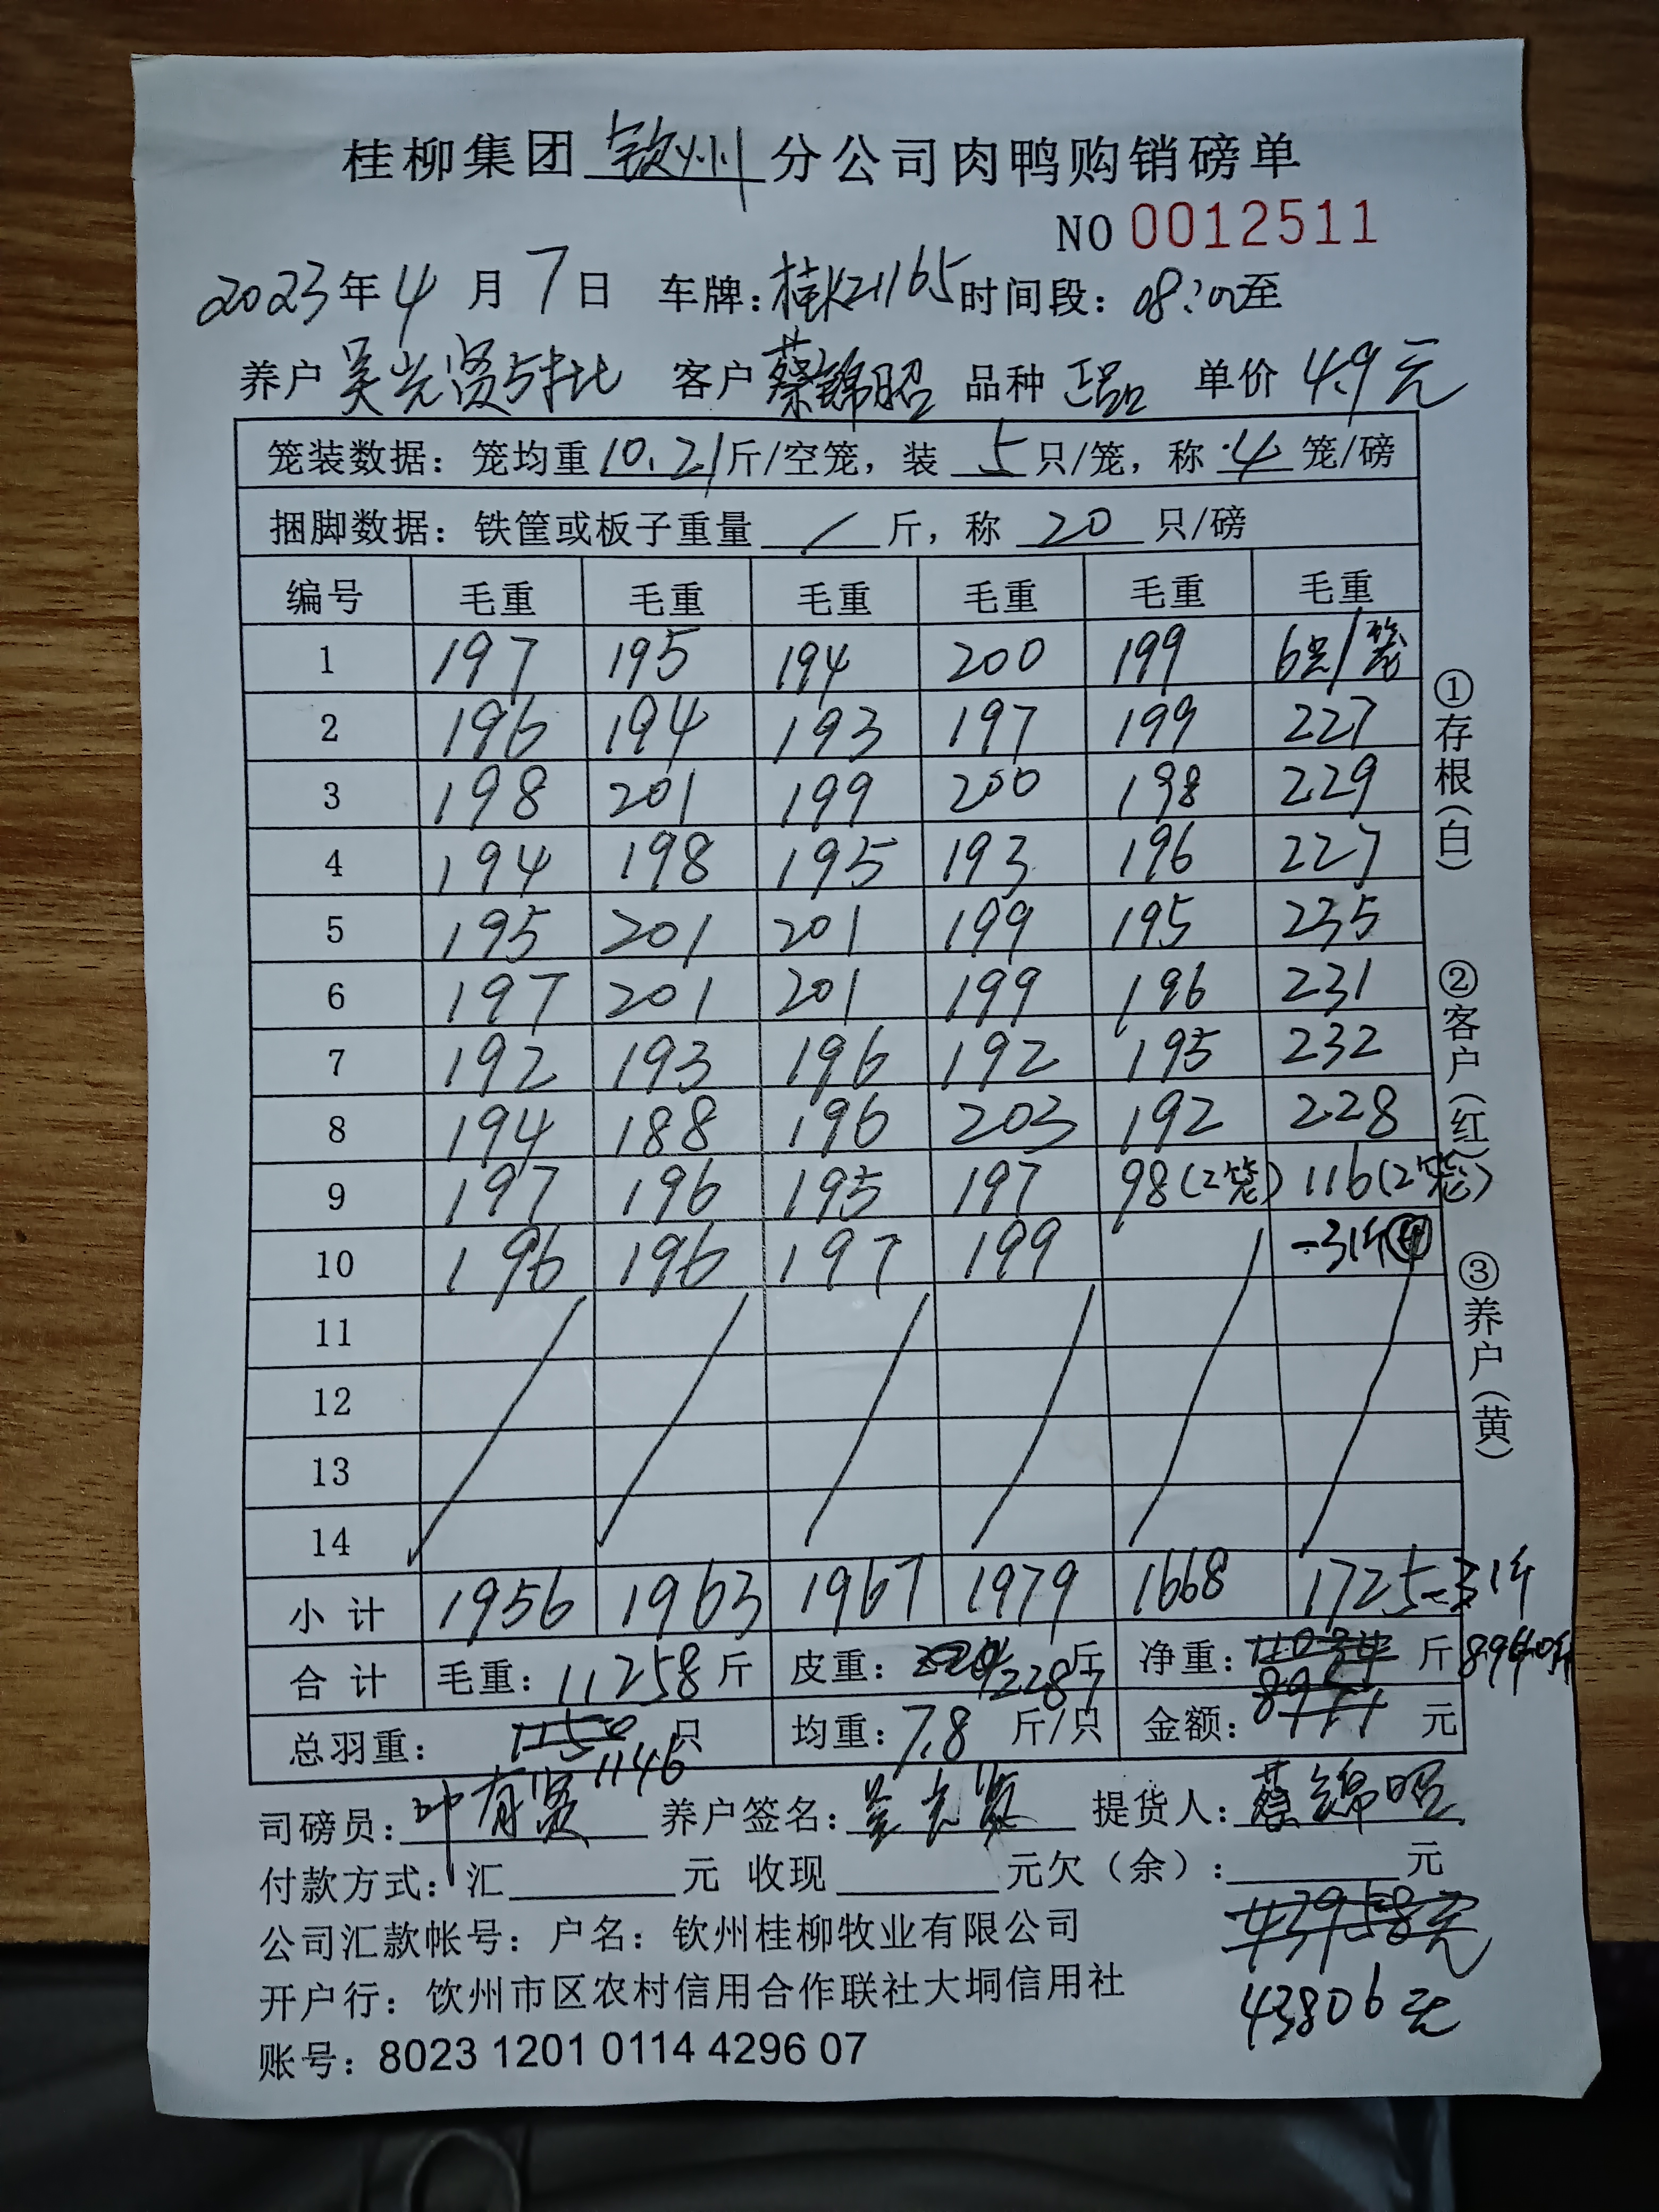 桂柳集团钦州分公司肉鸭购销磅单
NO 0012511
2023年4月7日 车牌:桂K21165时间段:08:00至
养户 吴光贤 客户 蔡锦昭 品种 正品 单价 4.9元
笼装数据:笼均重10.21斤/空笼,装 5 只/笼,称 4 笼/磅
捆脚数据:铁筐或板子重量 / 斤,称 20 只/磅
编号 毛重 毛重 毛重 毛重 毛重 毛重
1 197 195 194 200 199 6只/笼
2 196 194 193 197 199 227
3 198 201 199 200 198 229
4 194 198 195 193 196 227
5 195 201 201 199 195 235
6 197 201 201 199 196 231
7 192 193 196 192 195 232
8 194 188 196 203 192 228
9 197 196 195 197 98(2笼) 116(2笼)
10 196 196 197 199 -31斤
11
12
13
14
小计 1956 1963 1967 1979 1668 1725-31斤
合计 毛重:11258斤 皮重:2287斤 净重: 斤 8940斤
总羽重:1150 只 1146 均重:7.8斤/只 金额: 元
司磅员:叶有贤 养户签名:吴光贤 提货人:蔡锦昭
付款方式:汇 元 收现 元欠(余): 元
公司汇款帐号:户名:钦州桂柳牧业有限公司
43958元
开户行:钦州市区农村信用合作联社大垌信用社
43806元
账号:8023 1201 0114 4296 07
①存根(白)
②客户(红)
③养户(黄)